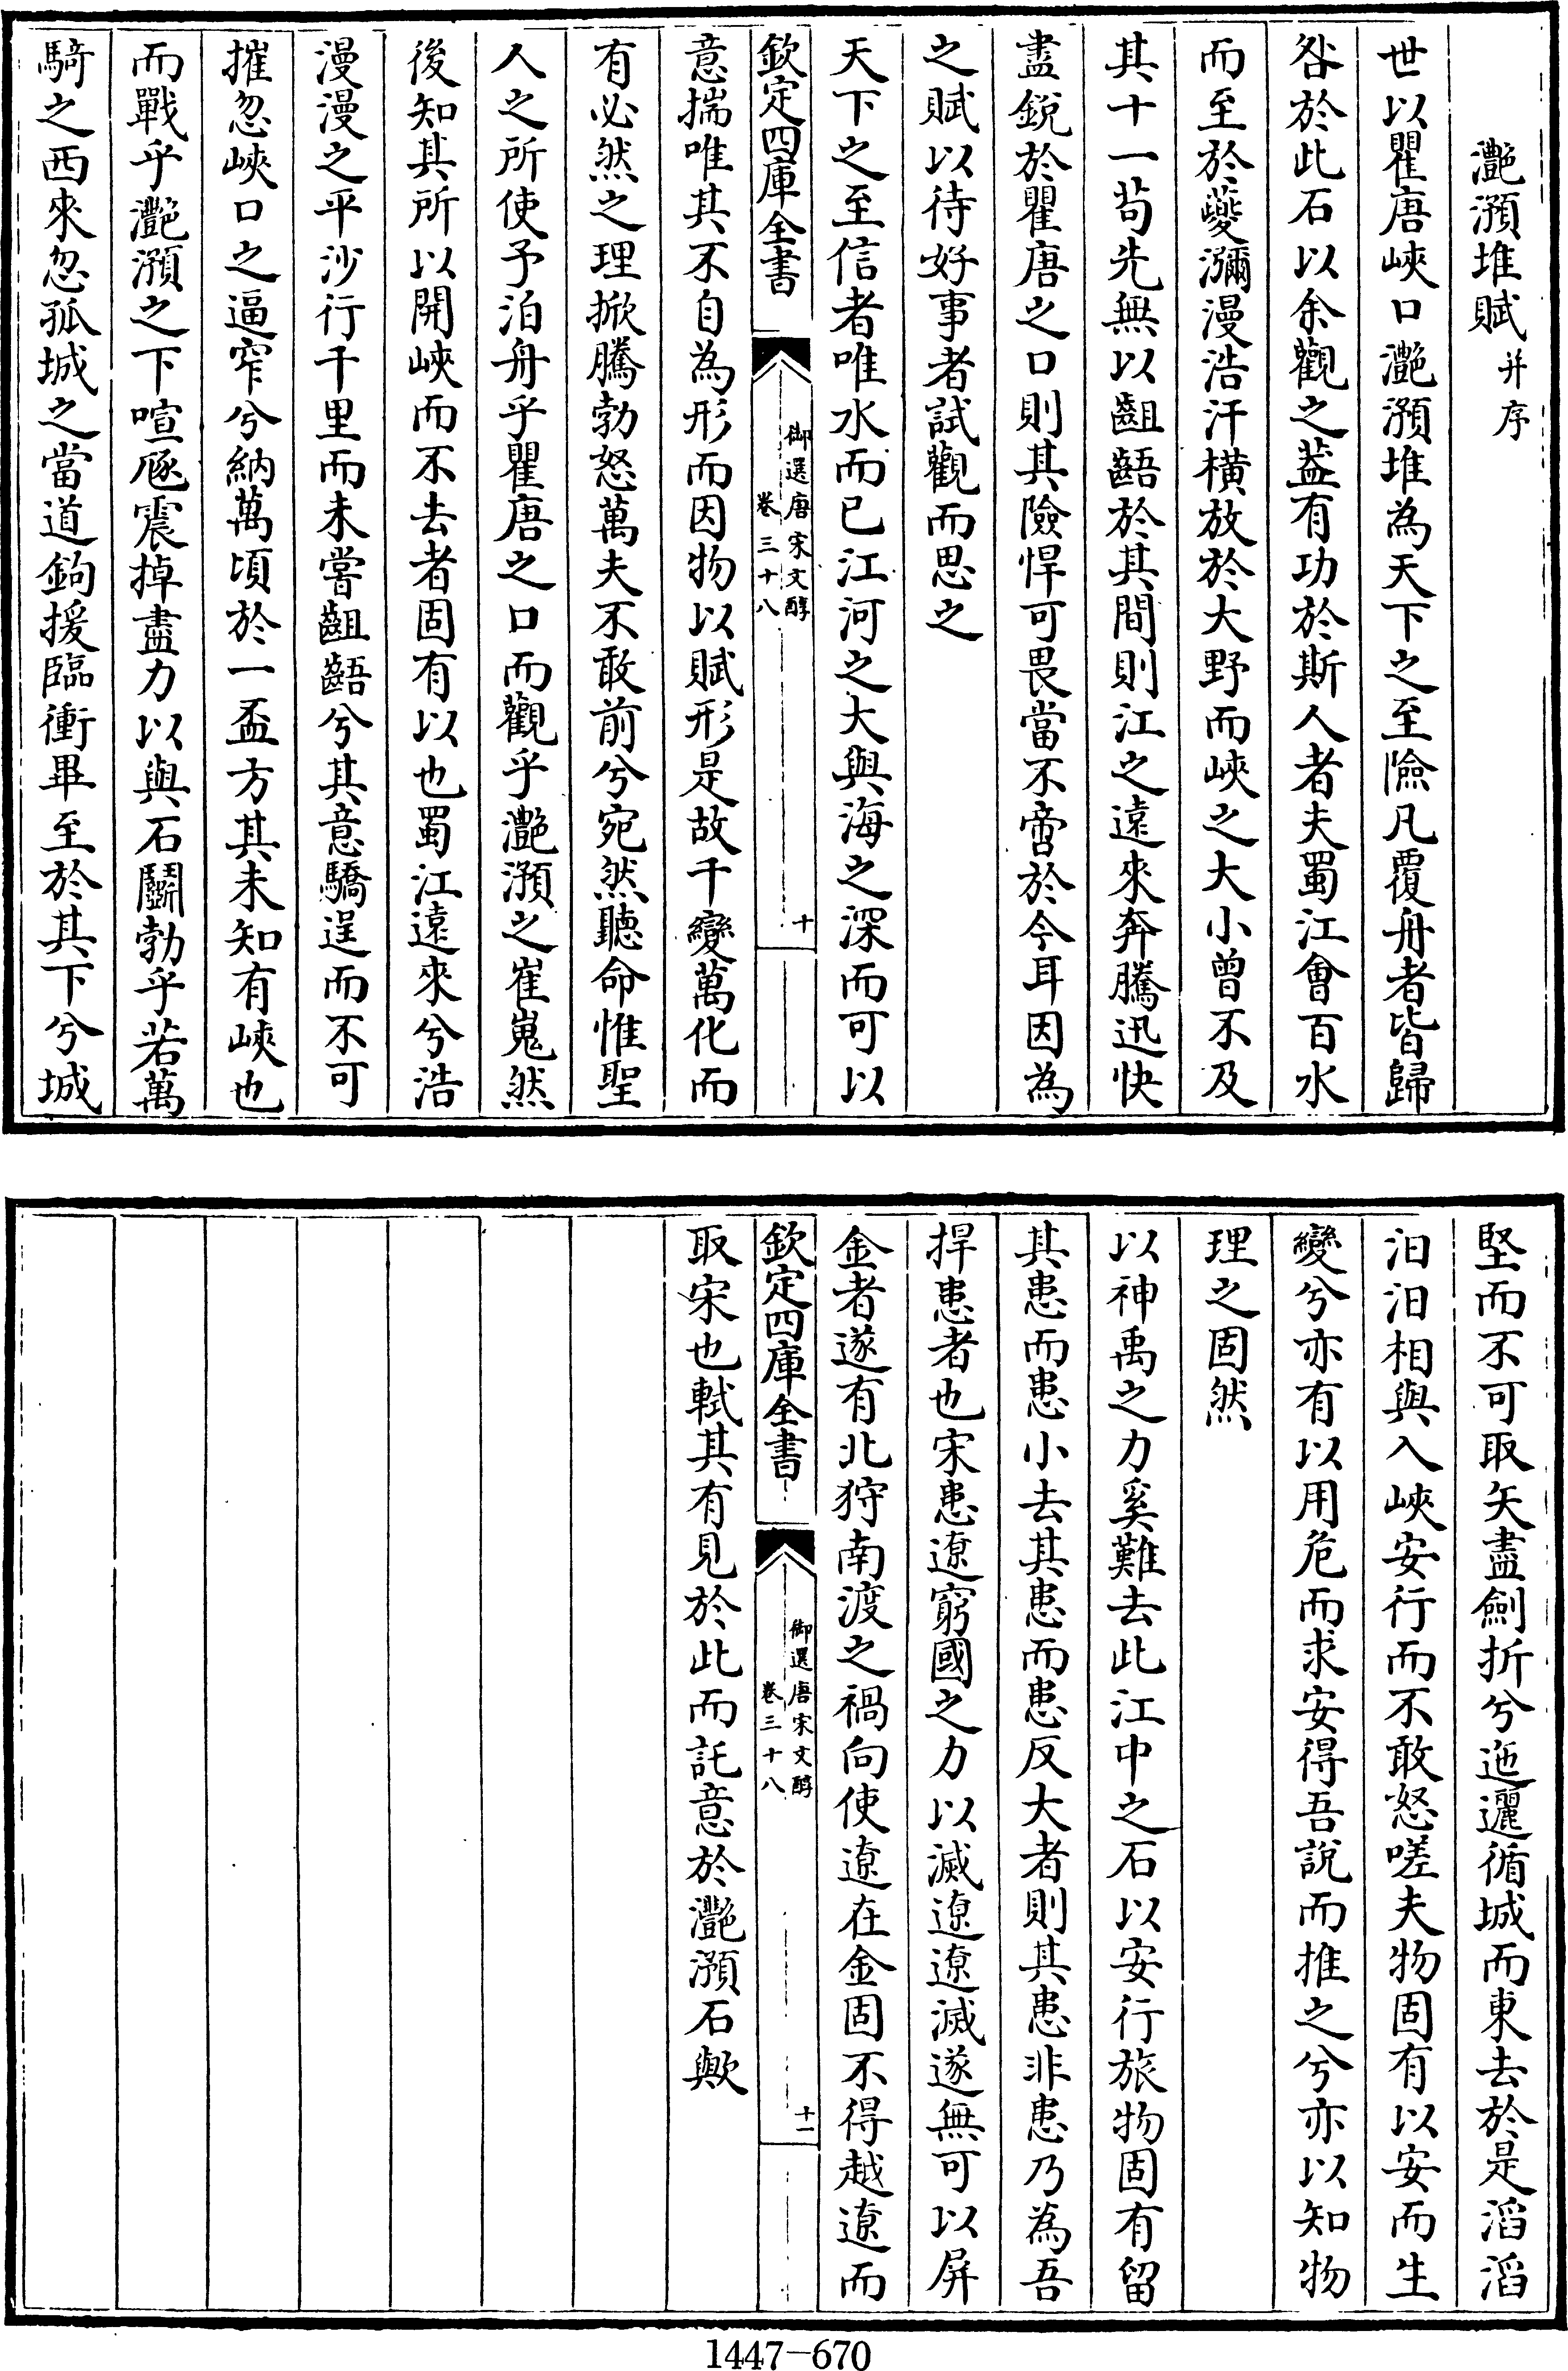 灧澦堆賦并序
世以瞿唐峽口灧澦堆為天下之至險凡覆舟者皆歸
咎於此石以余觀之葢有功於斯人者夫蜀江會百水
而至於夔瀰漫浩汗橫放於大野而峽之大小曾不及
其十一茍先無以齟齬於其間則江之遠來奔騰迅快
盡銳於瞿唐之口則其險悍可畏當不啻於今耳因為
之賦以待好事者試觀而思之
天下之至信者唯水而已江河之大與海之深而可以
欽定四庫全書
御選唐宋文醇
卷三十八
十
意揣唯其不自為形而因物以賦形是故千變萬化而
有必然之理掀騰勃怒萬夫不敢前兮宛然聽命惟聖
人之所使予泊舟乎瞿唐之口而觀乎灧澦之崔嵬然
後知其所以開峽而不去者固有以也蜀江遠來兮浩
漫漫之平沙行千里而未嘗齟齬兮其意驕逞而不可
摧忽峽口之逼窄兮納萬頃於一盃方其未知有峽也
而戰乎灧澦之下喧豗震掉盡力以與石鬬勃乎若萬
騎之西來忽孤城之當道鉤援臨衝畢至於其下兮城
堅而不可取矢盡劍折兮迤邐循城而東去於是滔滔
汩汩相與入峽安行而不敢怒嗟夫物固有以安而生
變兮亦有以用危而求安得吾說而推之兮亦以知物
理之固然
以神禹之力奚難去此江中之石以安行旅物固有留
其患而患小去其患而患反大者則其患非患乃為吾
捍患者也宋患遼窮國之力以滅遼遼滅遂無可以屏
金者遂有北狩南渡之禍向使遼在金固不得越遼而
欽定四庫全書
御選唐宋文醇
卷三十八
十一
取宋也軾其有見於此而託意於灧澦石歟
1447-670